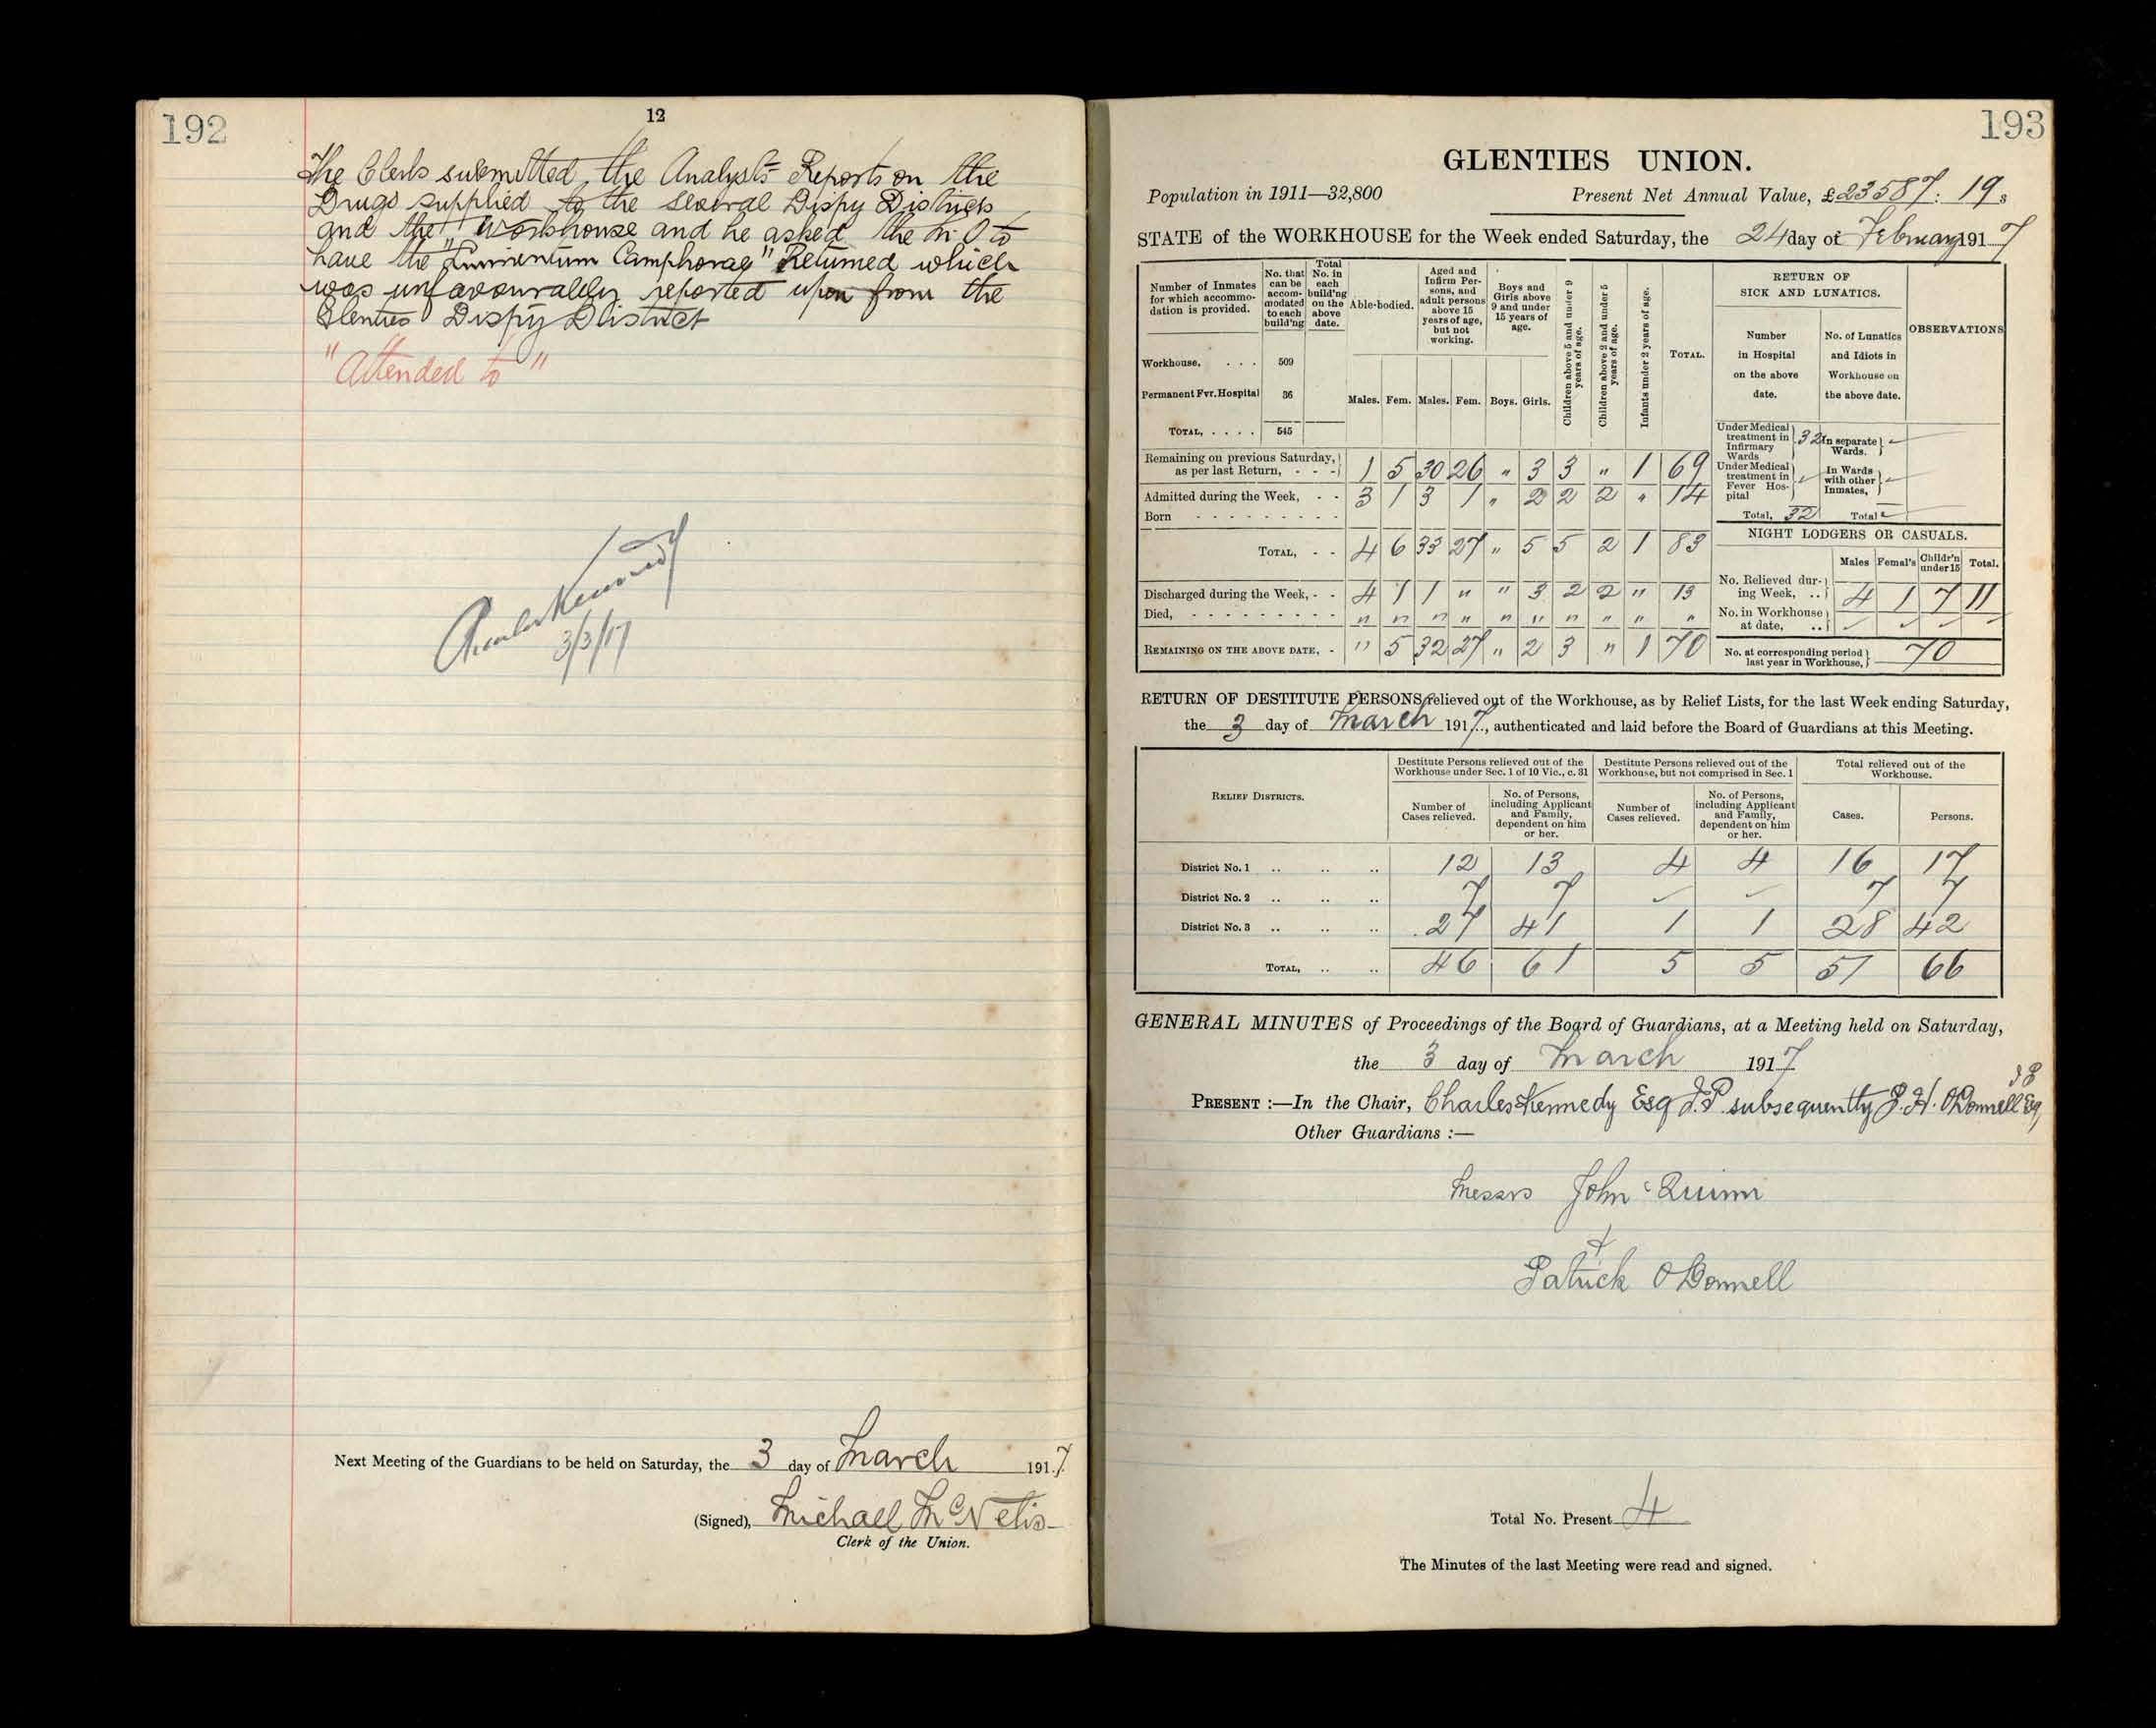 192
12
The Clerk submitted the Analysts Reports on the
Drugs supplied to the several Dispy Districts
and the Workhouse and he asked the M.O to
have the "Linimentum Camphorae" Returned which
was unfavourably reported upon from the
Glenties Dispy District
"Attended to"
Charles Kennedy
3/3/17
Next Meeting of the Guardians to be held on Saturday, the 3 day of March 1917.
(Signed), Michael McNelis
Clerk of the Union.
193
GLENTIES UNION.
Population in 1911—32,800 Present Net Annual Value, £23587: 19s
STATE of the WORKHOUSE for the Week ended Saturday, the 24 day of February 1917
Number of Inmates for which accommodation is provided. No. that can be accommodated to each build'ng Total No. in each build'ng on the above date. Able-bodied. Aged and Infirm Persons, and adult persons above 15 years of age, but not working. Boys and Girls above 9 and under 15 years of age. Children above 5 and under 9 years of age. Children above 2 and under 5 years of age. Infants under 2 years of age. TOTAL. RETURN OF SICK AND LUNATICS. OBSERVATIONS
Number in Hospital on the above date. No. of Lunatics and Idiots in Workhouse on the above date.
Workhouse. . . . 509
Permanent Fvr. Hospital 36
TOTAL, . . . . 545
Males. Fem. Males. Fem. Boys. Girls.
Remaining on previous Saturday, as per last Return, - - - 1 5 30 26 " 3 3 " 1 69
Admitted during the Week, - - 3 1 3 1 " 2 2 2 " 14
Born - - - - - - - - -
TOTAL, - - 4 6 33 27 " 5 5 2 1 83
Discharged during the Week, - - 4 1 1 " " 3 2 2 " 13
Died, - - - - - - - - - " " " " " " " " " "
REMAINING ON THE ABOVE DATE, - " 5 32 27 " 2 3 " 1 70
Under Medical treatment in Infirmary Wards 32 In separate Wards.
Under Medical treatment in Fever Hospital In Wards with other Inmates,
Total, 32 Total
NIGHT LODGERS OR CASUALS.
Males Femal's Childr'n under 15 Total.
No. Relieved during Week, .. 4 1 7 11
No. in Workhouse at date, ..
No. at corresponding period last year in Workhouse, 70
RETURN OF DESTITUTE PERSONS relieved out of the Workhouse, as by Relief Lists, for the last Week ending Saturday,
the 3 day of March 1917., authenticated and laid before the Board of Guardians at this Meeting.
RELIEF DISTRICTS. Destitute Persons relieved out of the Workhouse under Sec. 1 of 10 Vic., c. 31 Destitute Persons relieved out of the Workhouse, but not comprised in Sec. 1 Total relieved out of the Workhouse.
Number of Cases relieved. No. of Persons, including Applicant and Family, dependent on him or her. Number of Cases relieved. No. of Persons, including Applicant and Family, dependent on him or her. Cases. Persons.
District No. 1 .. .. .. 12 13 4 4 16 17
District No. 2 .. .. .. 7 7 7 7
District No. 3 .. .. .. 27 41 1 1 28 42
TOTAL, .. .. 46 61 5 5 51 66
GENERAL MINUTES of Proceedings of the Board of Guardians, at a Meeting held on Saturday,
the 3 day of March 1917
PRESENT :—In the Chair, Charles Kennedy Esq J.P. subsequently P.H. O'Donnell Esq,
Other Guardians :—
Messrs John Quinn
+
Patrick O'Donnell
Total No. Present 4
The Minutes of the last Meeting were read and signed.